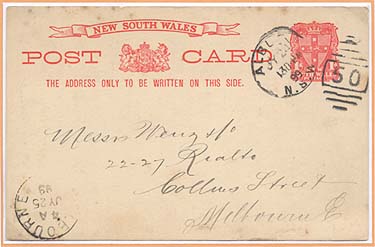 NEW SOUTH WALES
POST CARD
THE ADDRESS ONLY TO BE WRITTEN ON THIS SIDE.
N.S.W
50
Messrs
22-27 Rialto
Collins Street
Melbourne
BOURNE
4 A
JY 25